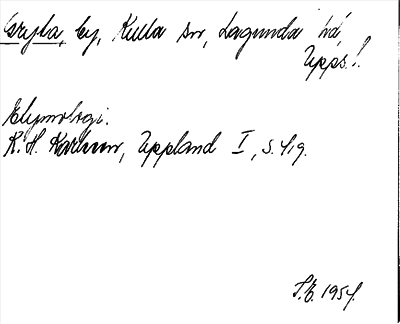 Gryta, by, Kulla sn, Lagunda hd,
Upps. l.
Etymologi.
K. H. Karlsson, Uppland I, s. 419.
S.B. 1954.